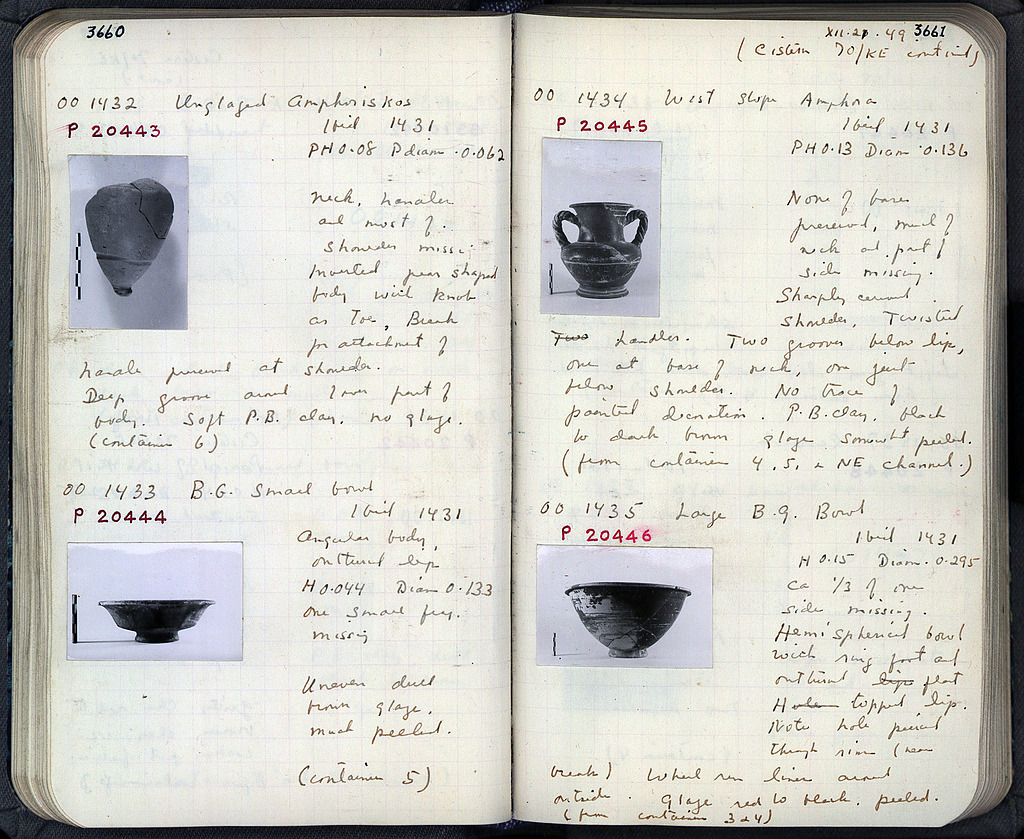 3660
OO 1432 Unglazed Amphoriskos
P 20443
Ibid 1431
PH 0.08 P diam. 0.062
Neck, handles
and most of
shoulder missi.
Inverted pear shaped
body with knob
as Toe, Break
for attachment of
handle preserved at shoulder.
Deep groove around lower part of
body. Soft P.B. clay, no glaze.
(container 6)
OO 1433 B.G. Small bowl
P 20444
Ibid 1431
Angular body,
outturned lip
H 0.044 Diam 0.133
one small frg.
missing
Uneven dull
brown glaze,
much peeled.
(container 5)
XII.21.49 3661
(Cistern 70/KE contin'd)
OO 1434 West Slope Amphora
P 20445
Ibid 1431
PH 0.13 Diam. 0.136
None of base
preserved, much of
neck and part of
side missing.
Sharply curved
shoulder, Twisted
Two handles. Two grooves below lip,
one at base of neck, one just
below shoulder. No trace of
painted decoration. P.B. clay, black
to dark brown glaze somewhat peeled.
(from container 4, 5, & NE channel.)
OO 1435 Large B.G. Bowl
P 20446
Ibid 1431
H 0.15 Diam. 0.295
Ca 1/3 of one
side missing.
Hemispherical bowl
with ring foot and
outturned lip flat
topped lip.
Note hole pierced
through rim (near
break) Wheel run lines around
outside. Glaze red to black, peeled.
(from container 3 & 4)